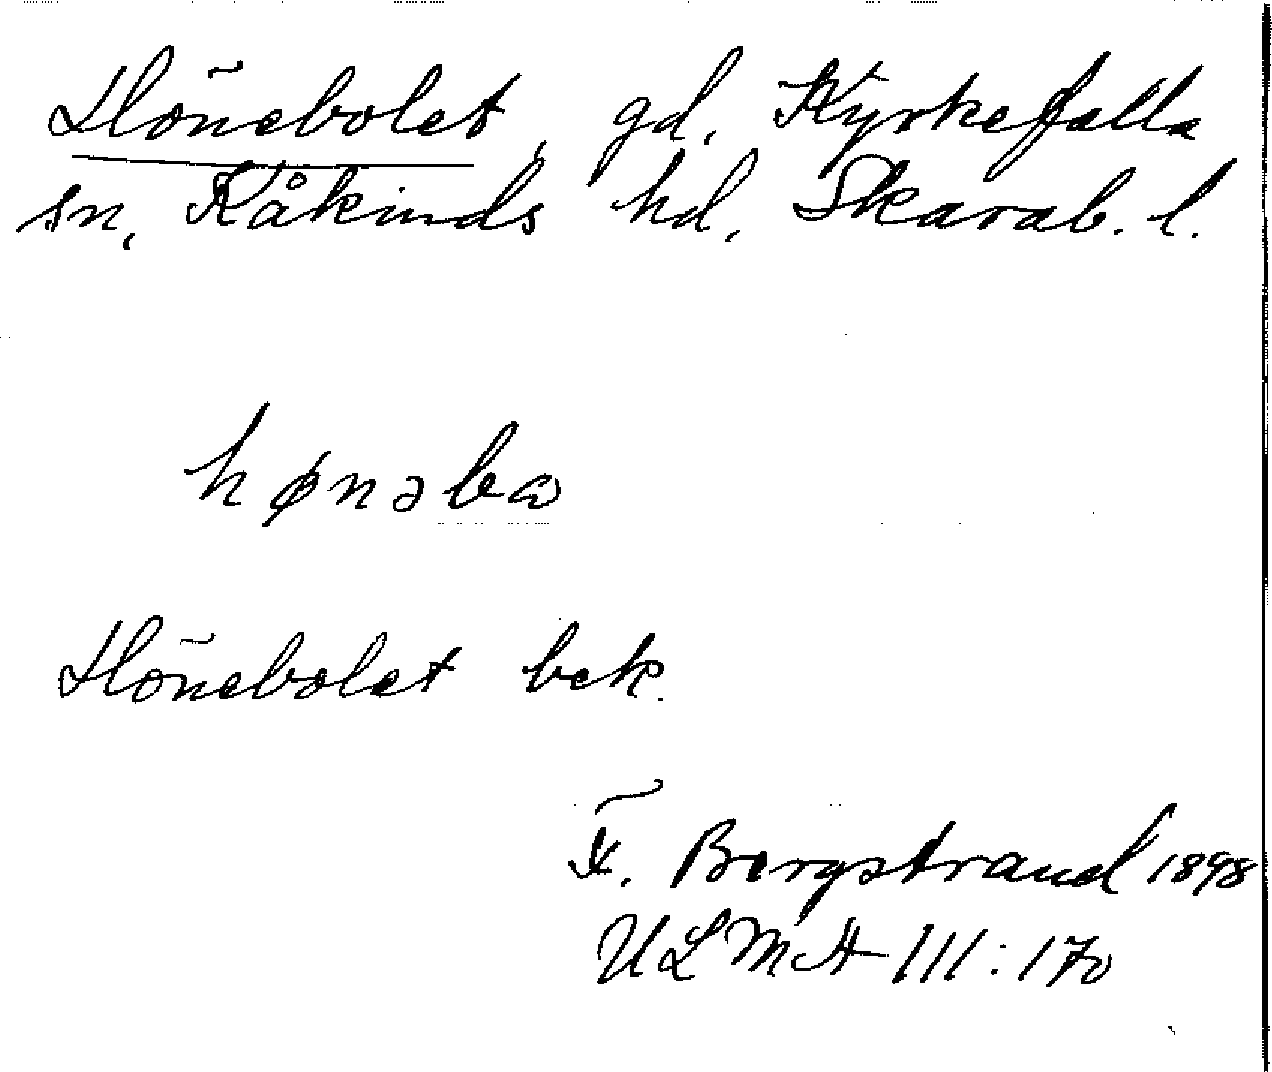 Hönebolet, gd, Kyrkefalla
sn, Kåkinds hd, Skarab. l.
hønəbɷ
Hönebolet bek.
F. Bergstrand 1898
ULMA 111:170